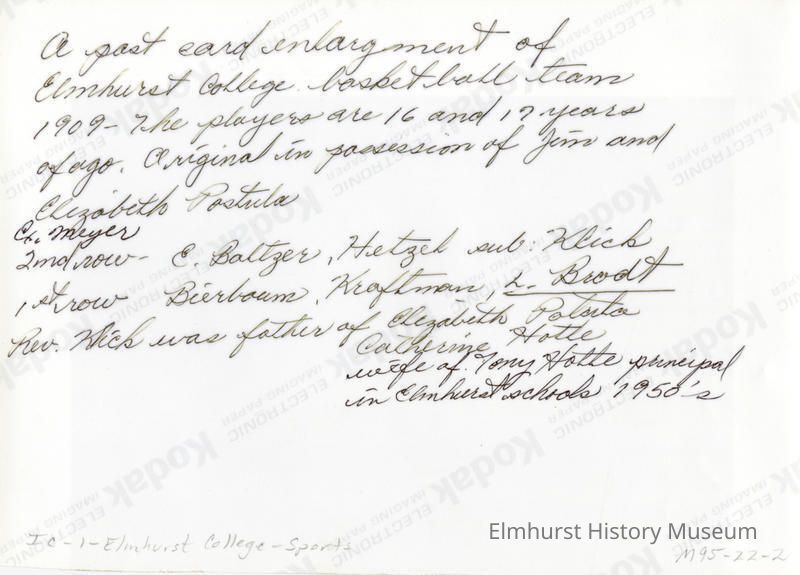 A post card enlargment of
Elmhurst College basketball team
1909 - The players are 16 and 17 years
of ago. Original in possession of Jim and
Elizabeth Postula
G. Meyer
2nd row - E. Baltzer, Hetzel sub: Klick
1st row Bierbaum, Kraftman, L. Brodt
Rev. Klick was father of Elizabeth
Catherine Hotte
wife of Tony Hotte principal
in Elmhurst schools 1950's
IC-1-Elmhurst College-Sports
Elmhurst History Museum
M95-22-2
Kodak
ELECTRONIC
IMAGING PAPER